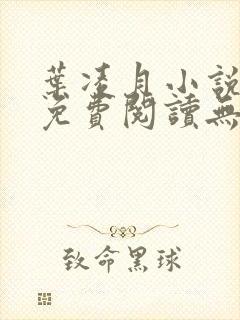 葉凌月小說
免費閱讀無
致命黑球